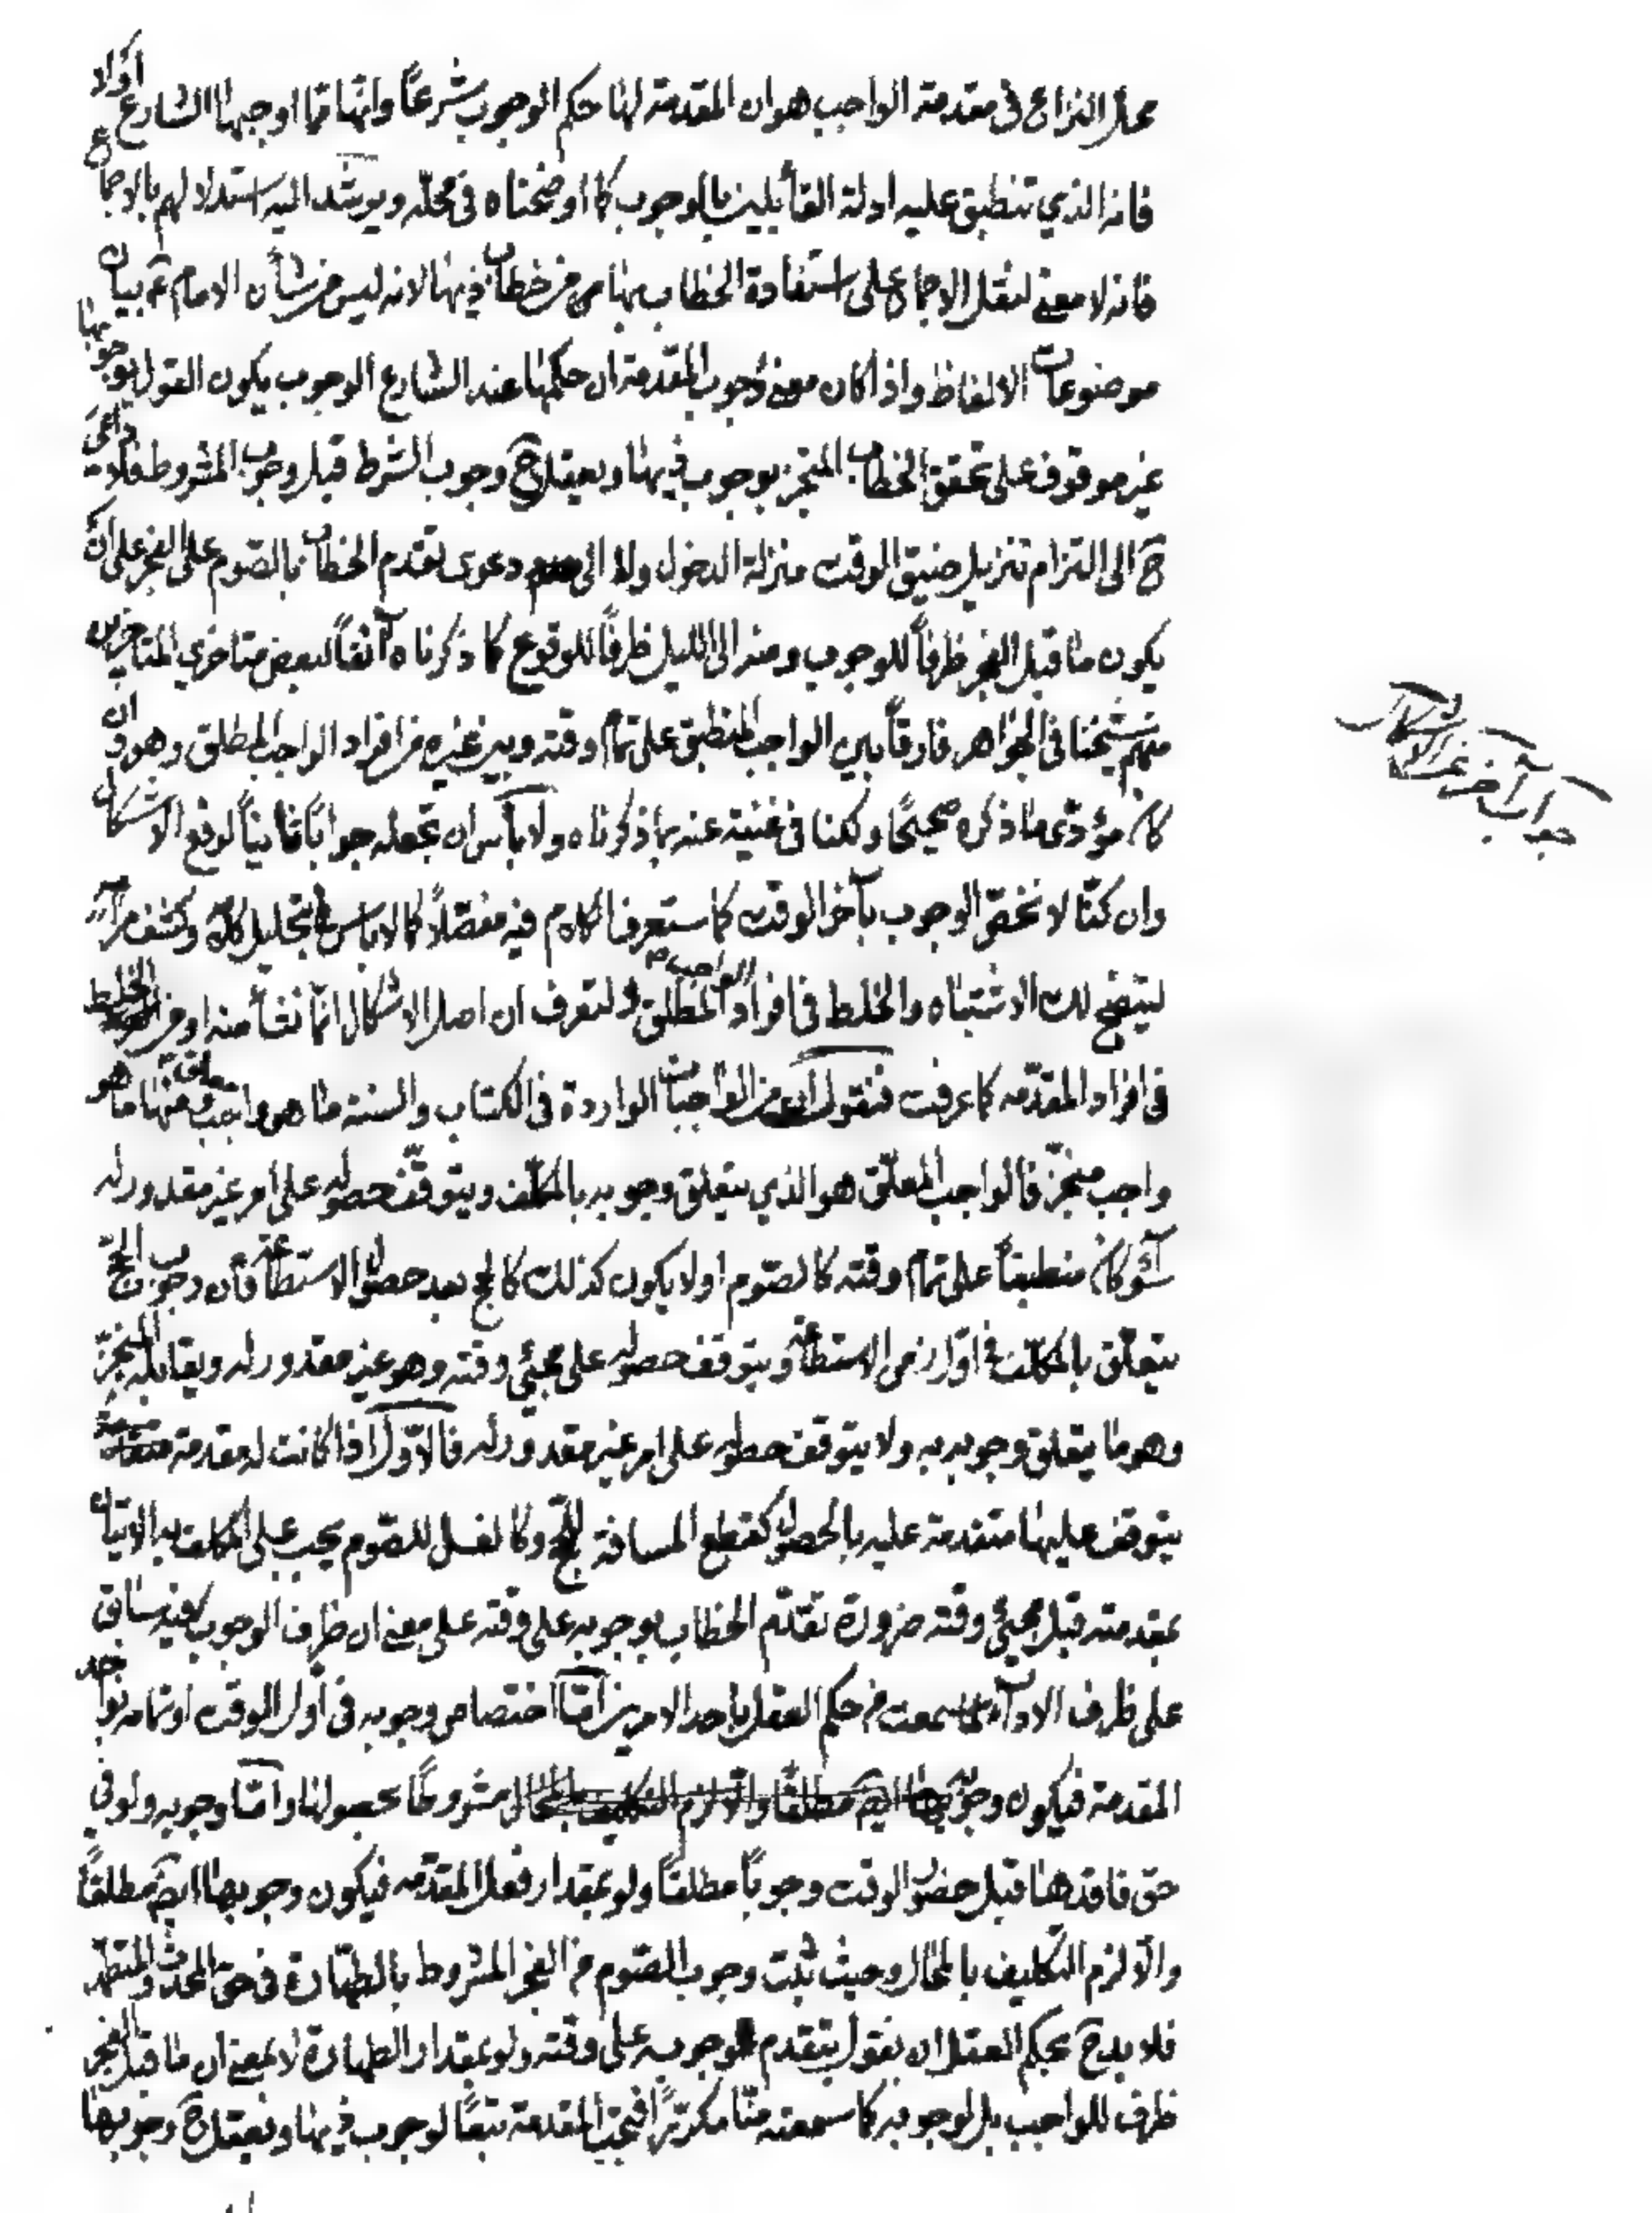 محل النزاع فى مقدمة الواجب هو ان المقدمة لها حكم الوجوب شرعًا وانها مما اوجبها الشارع اولا
فانه الذي تنطبق عليه ادلة القائلين بالوجوب كما اوضحناه فى محله ويرشد اليه استدلالهم بالاجماع
فانه لا معنى لنقل الاجماع على استفادة الخطاب بها من خطاب ذيها لانه ليس من شأن الامام ع بيان
موضوعات الالفاظ واذا كان معنى وجوب المقدمة ان حكمها عند الشارع الوجوب يكون القول بوجوبها
غير موقوف على تحقق الخطاب المنجز بوجوب ذيها ويعقل ح وجوب الشرط قبل وجوب المشروط فلا داعى
ح الى التزام تنزيل ضيق الوقت منزلة الدخول ولا الى دعوى تقدم الخطاب بالصوم على الفجر على ان
يكون ما قبل الفجر ظرفاً للوجوب ومنه الى الليل ظرفاً للوقوع كما ذكرناه آنفاً لبعض متاخري المتاخرين
منهم شيخنا فى الجواهر فارقاً بين الواجب المنطبق على تمام وقته وبين غيره من افراد الواجب المطلق وهو وان
كان مؤدّى ما ذكره صحيحًا ولكنا فى غنية عنه بما ذكرناه ولا بأس ان تجعله جوابًا ثانياً لدفع الاشكال
وان كنّا لا نخصّ الوجوب بآخر الوقت كما ستعرف الكلام فيه مفصّلاً كما لا بأس بتحليل كلامه وكشف مرامه
ليتضح لك الاشتباه والخلط فى افراد الواجب المطلق ولتعرف ان اصل الاشكال انّما نشأ منه او من الخلط
فى افراد المقدّمه كما عرفت فنقول ان من الواجبات الواردة فى الكتاب والسنة ما هو واجب معلق ومنها ما هو
واجب منجزّ فالواجب المعلّق هو الذي يتعلق وجوبه بالمكلّف ويتوقّف حصوله على امر غير مقدور له
سواء كان منطبقاً على تمام وقته كالصّوم او لا يكون كذلك كالحج بعد حصول الاستطاعة فان وجوب الحجّ
يتعلّق بالمكلّف فى اوّل زمن الاستطاعة ويتوقف حصوله على مجيئ وقته وهو غير مقدور له ويقابله المنجزّ
وهو ما يتعلق وجوبه به ولا يتوقف حصوله على امر غير مقدور له فالاوّل اذا كانت له مقدمة
يتوقف عليها متقدمة عليه بالحصول كقطع المسافة للحج وكالغسل للصّوم يجب على المكلف به الاتيان
بمقدمته قبل مجيئ وقته ضرورة تقدّم الخطاب بوجوبه على وقته على معنى ان ظرف الوجوب فيه سابق
على ظرف الاداء لما سمعت من حكم العقل باحد الامرين امّا اختصاص وجوبه فى اوّل الوقت او تمامه بواجد
المقدمة فيكون وجوبه مشروطًا بحصولها وامّا وجوبه ولو فى
حق فاقدها قبل حضور الوقت وجوباً مطلقاً ولو بمقدار فعل المقدّمه فيكون وجوبها ايضًا مطلقاً
والّا لزم التكليف بالمحال وحيث ثبت وجوب الصّوم من الفجر المشروط بالطهارة فى حق المحدث والمتطهّر
فلا بد ح بحكم العقل ان نقول بتقدم وجوبه على وقته ولو بمقدار الطهارة لا بمعنى ان ما قبل الفجر
ظرف للواجب بل لوجوبه كما سمعته منّا مكررًا فتجب المقدمة تبعًا لوجوب ذيها ونعقل ح وجوبها
جواب آخر عن الاشكال